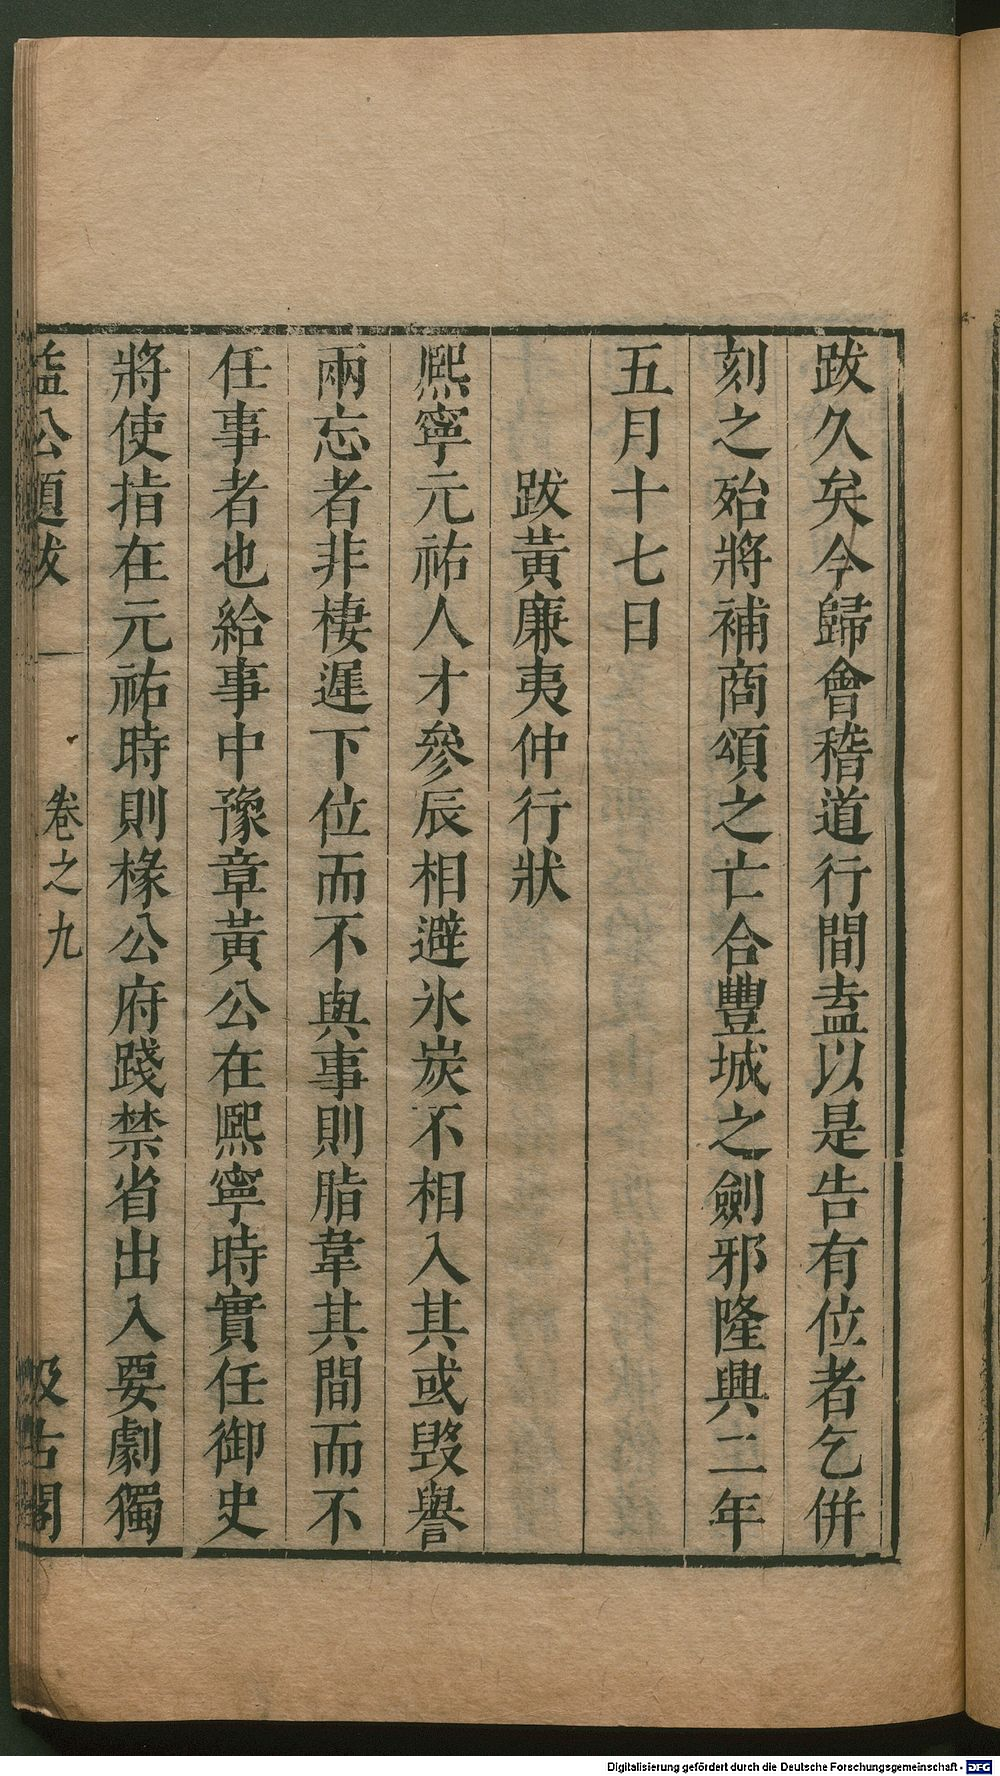 跋久矣今歸會稽道行間盍以是告有位者乞併
刻之殆將補商頌之亡合豐城之劍邪隆興二年
五月十七日
跋黃廉夷仲行狀
熈寧元祐人才參辰相避氷炭不相入其或毀譽
兩忘者非棲遲下位而不與事則脂韋其間而不
任事者也給事中豫章黃公在熈寧時實任御史
將使指在元祐時則椽公府踐禁省出入要劇獨
益公題跋 卷之九 汲古閣
Digitalisierung gefördert durch die Deutsche Forschungsgemeinschaft - DFG